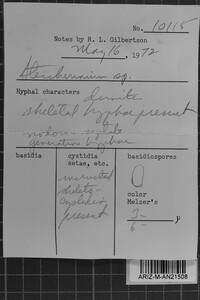 No. 10115
Notes by R. L. Gilbertson
May 16, 1972
sp.
Hyphal characters dimitic
skeletal hyphae present
nodose-septate
generative hyphae
basidia cystidia setae, etc. basidiospores
encrusted
skeleto-
cystidia
present
color
Melzer's
μ
ARIZ-M-AN21508